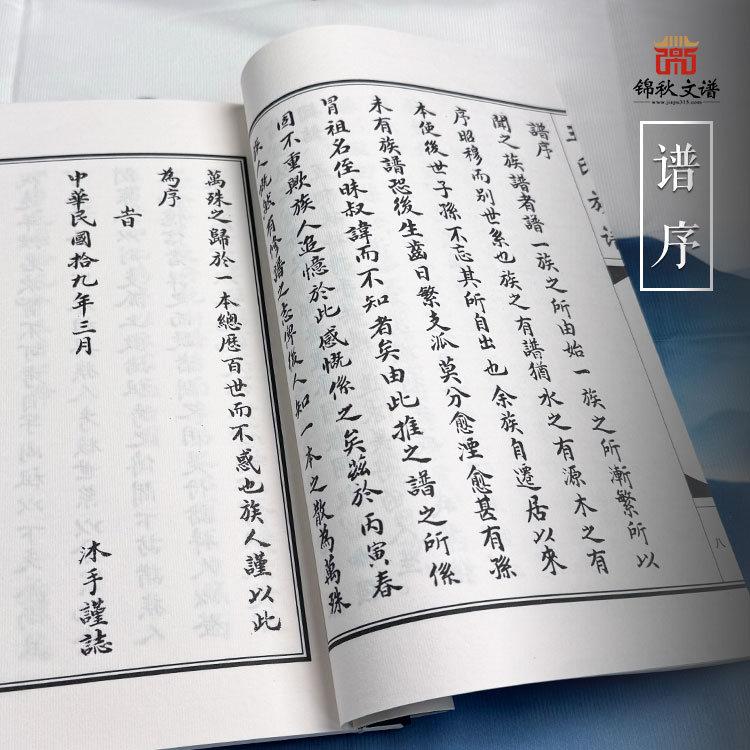 锦秋文谱
www.jiapu315.com
谱序
王氏族譜
八
譜序
聞之族譜者譜一族之所由始一族之所漸繁所以
序昭穆而別世系也族之有譜猶水之有源木之有
本使後世子孫不忘其所自出也余族自遷居以來
未有族譜恐後生齒日繁支派莫分愈湮愈甚有孫
冒祖名侄昧叔諱而不知者矣由此推之譜之所係
固不重歟族人追憶於此感慨係之矣茲於丙寅春
族人既然有修譜之志俾後人知一本之散為萬珠
萬珠之歸於一本總歷百世而不惑也族人謹以此
為序
旹
中華民國拾九年三月
沐手謹誌